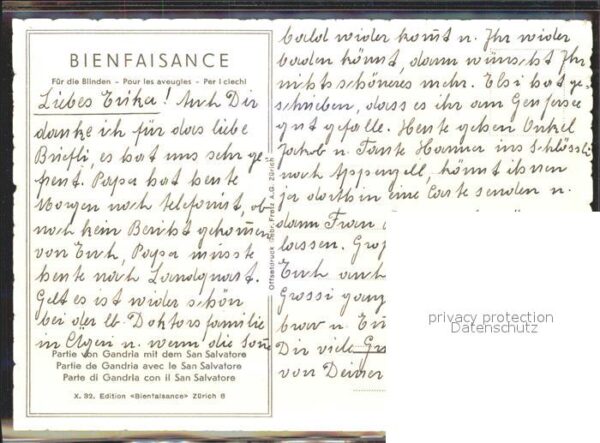 BIENFAISANCE
Für die Blinden - Pour les aveugles - Per i ciechi
Liebes Erika! Auch Dir
danke ich für das liebe
Briefli, es hat uns sehr ge-
freut. Papa hat heute
Morgen noch telefoniert, ob
noch kein Bericht gekommen
von Euch, Papa musste
heute nach Landquart.
Gelt es ist wider schön
bei der lb. Doktorsfamilie
in Ägeri u. wenn die Sonne
Partie von Gandria mit dem San Salvatore
Partie de Gandria avec le San Salvatore
Parte di Gandria con il San Salvatore
X. 32. Edition «Bienfaisance» Zürich 8
Offsetdruck Gebr. Fretz A.G. Zürich
bald wider kommt u. Ihr wider
baden könnt, dann wünscht Ihr
nichts schöneres mehr. Elsi hat ge-
schrieben, dass es ihr am Genfersee
gut gefalle. Heute gehen Onkel
Jakob u. Tante Hanna ins Schlössli
nach Appenzell, könnt ihnen
ja dorthin eine Carte senden u.
dann Frau
lassen.
Euch auch
Grossi ganz
brav u.
Dir viele
von Deiner
privacy protection
Datenschutz